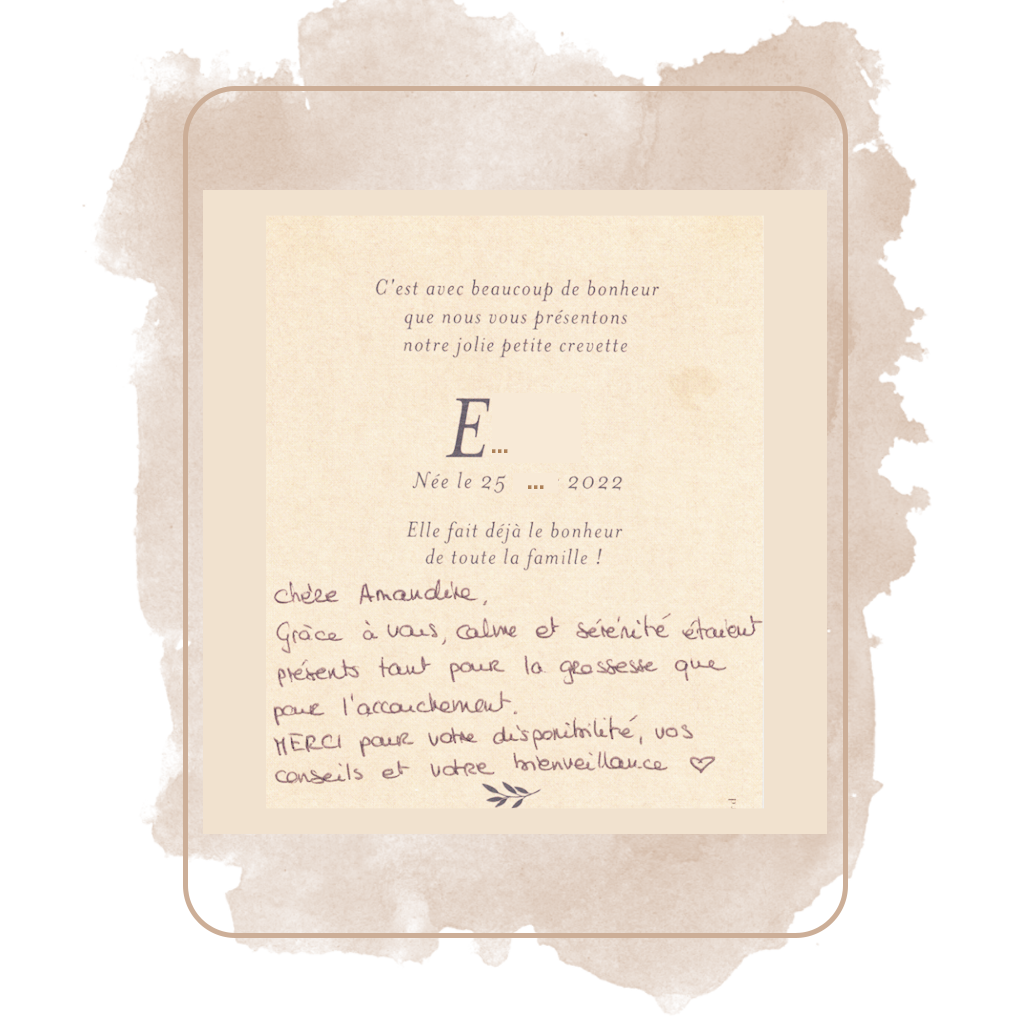 C'est avec beaucoup de bonheur
que nous vous présentons
notre jolie petite crevette
E...
Née le 25 ... 2022
Elle fait déjà le bonheur
de toute la famille !
Chère Amandine,
Grâce à vous, calme et sérénité étaient
présents tant pour la grossesse que
pour l'accouchement.
MERCI pour votre disponibilité, vos
conseils et votre bienveillance ♡